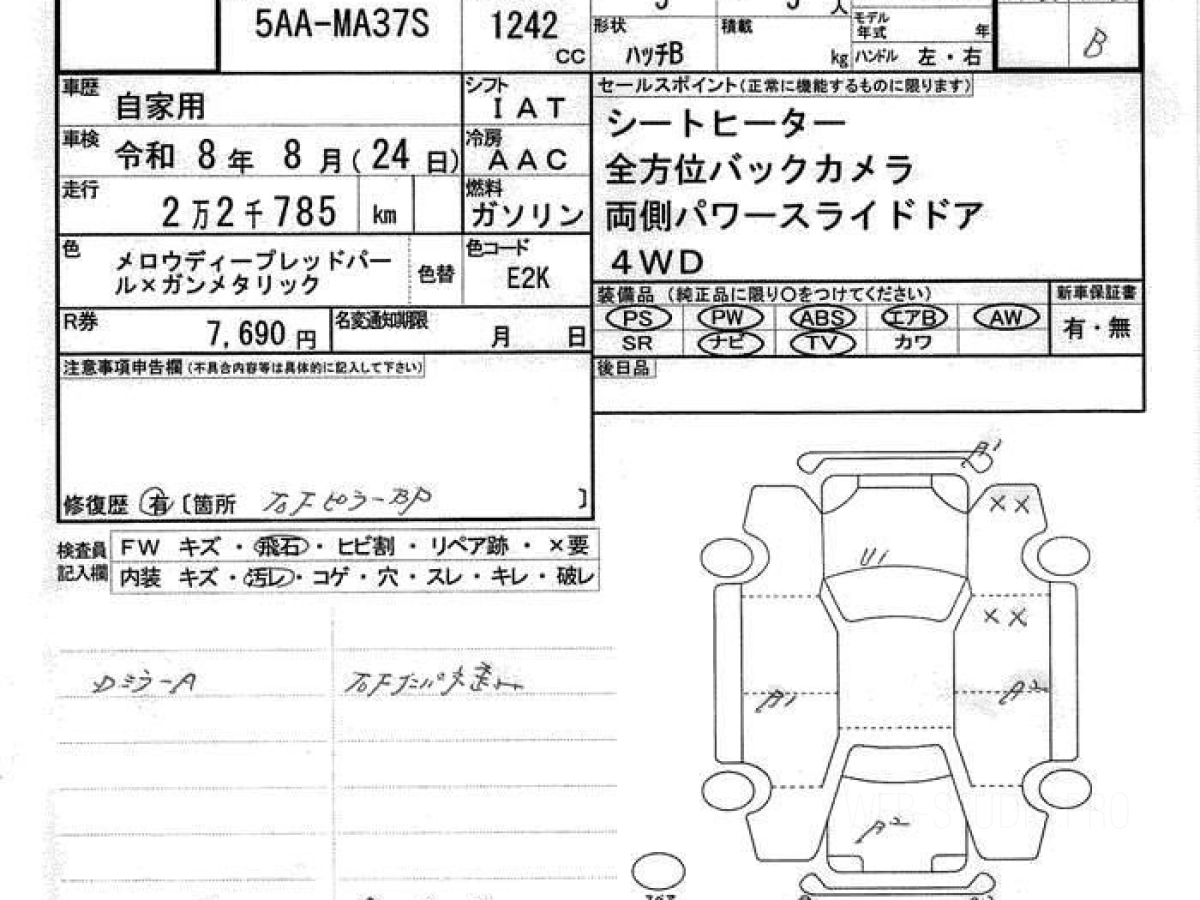 5AA-MA37S
1242
CC
人
形状
ハッチB
積載
kg
モデル
年式
年
ハンドル 左・右
B
車歴
自家用
シフト
IAT
セールスポイント(正常に機能するものに限ります)
シートヒーター
全方位バックカメラ
両側パワースライドドア
4WD
車検
令和 8年 8月(24日)
冷房
AAC
走行
2万2千785 km
燃料
ガソリン
色
メロウディープレッドパー
ル×ガンメタリック
色替
色コード
E2K
装備品 (純正品に限り○をつけてください)
新車保証書
PS PW ABS エアB AW
有・無
SR ナビ TV カワ
R券
7,690 円
名変通知期限
月 日
注意事項申告欄(不具合内容等は具体的に記入して下さい)
後日品
修復歴 有 〔箇所 〕
検査員
記入欄
FW キズ・飛石・ヒビ割・リペア跡・×要
内装 キズ・汚レ・コゲ・穴・スレ・キレ・破レ
DミラーA
A1
××
U1
××
A1
A2
A2
WEB STUDY PRO